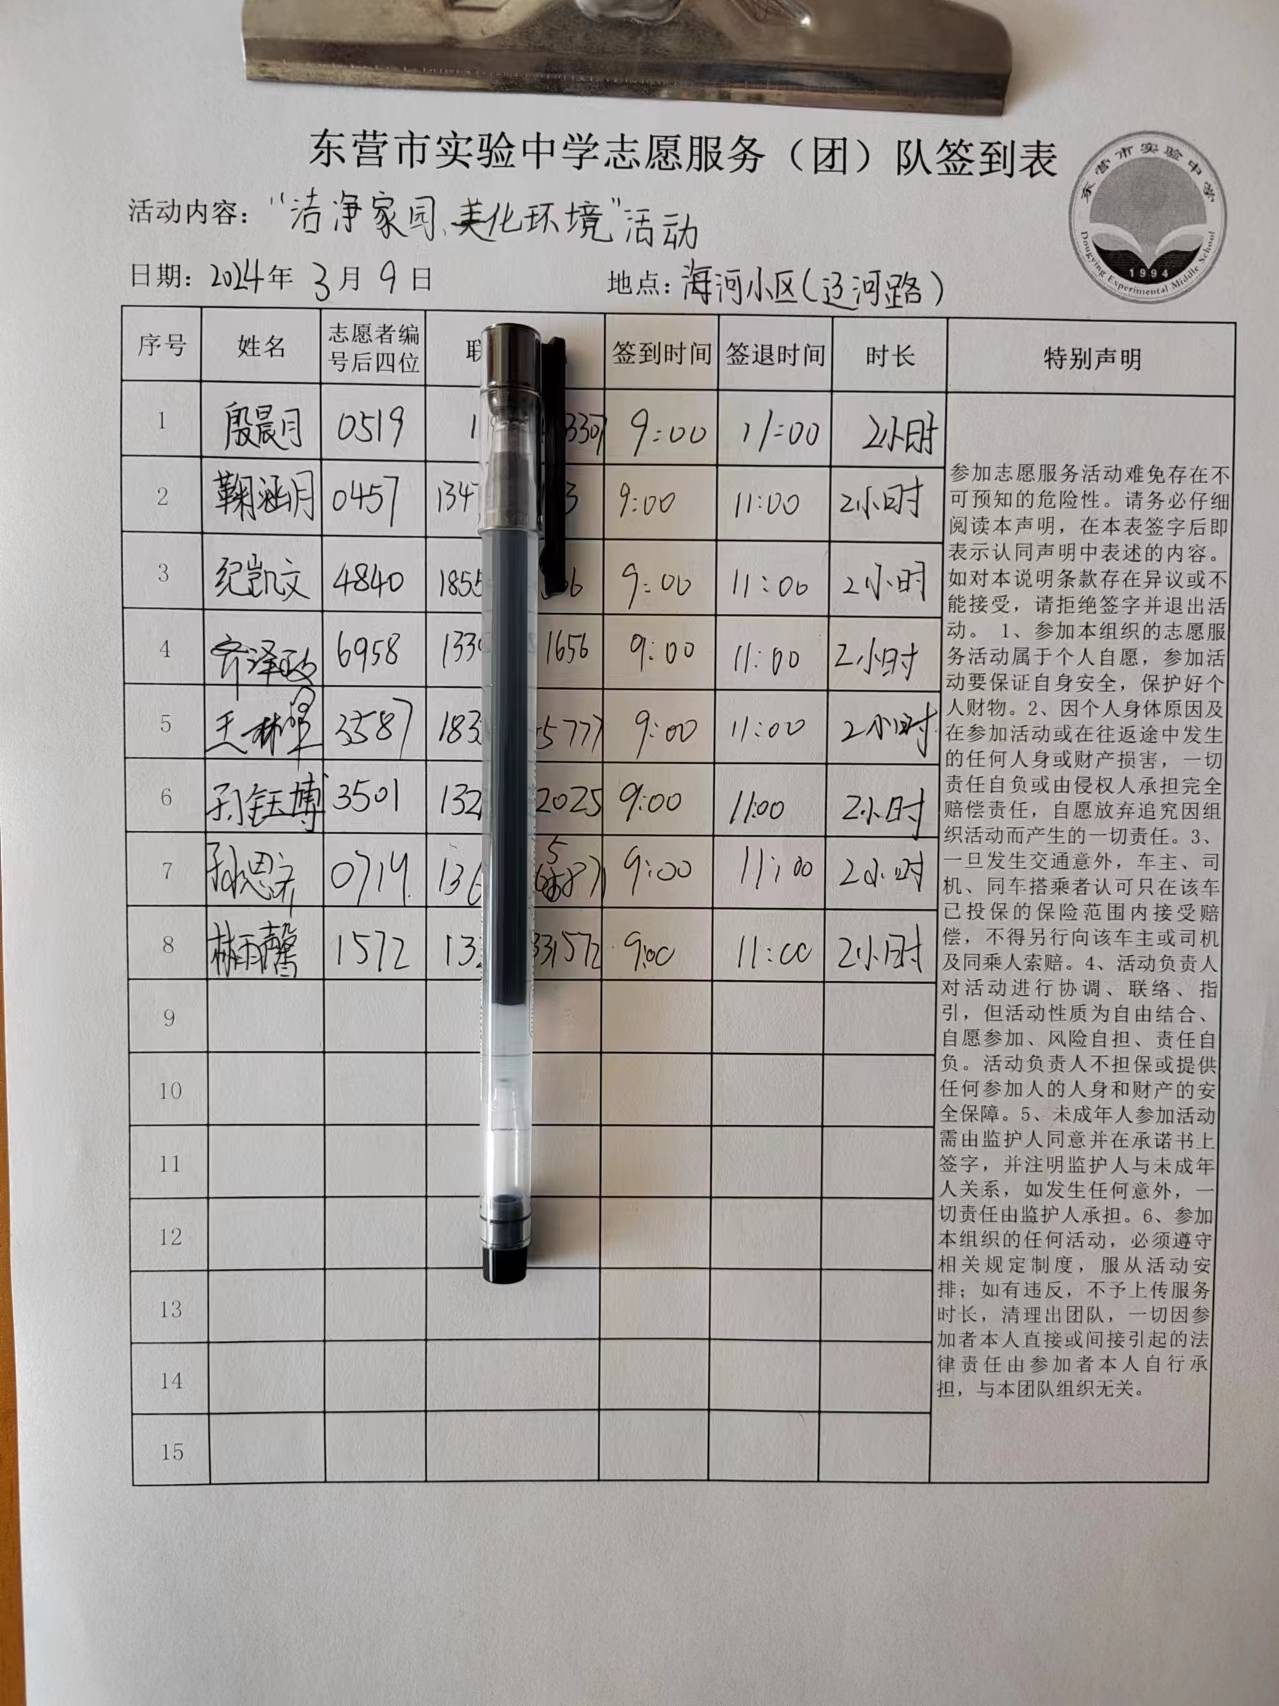 东营市实验中学志愿服务（团）队签到表
东营市实验中学
Dongying Experimental Middle School
1994
活动内容：“洁净家园、美化环境”活动
日期：2024年 3月 9日 地点：海河小区（辽河路）
序号 姓名 志愿者编号后四位 联 签到时间 签退时间 时长 特别声明
1 殷晨月 0519 1 3307 9:00 11:00 2小时
2 鞠涵月 0457 134 3 9:00 11:00 2小时
3 纪凯文 4840 1855 06 9:00 11:00 2小时
4 齐泽政 6958 133 1656 9:00 11:00 2小时
5 王 3587 183 5777 9:00 11:00 2小时
6 孙钰博 3501 132 2025 9:00 11:00 2小时
7 孙思齐 0719 136 9:00 11:00 2小时
8 林雨馨 1572 13 331572 9:00 11:00 2小时
9
10
11
12
13
14
15
参加志愿服务活动难免存在不
可预知的危险性。请务必仔细
阅读本声明，在本表签字后即
表示认同声明中表述的内容。
如对本说明条款存在异议或不
能接受，请拒绝签字并退出活
动。 1、参加本组织的志愿服
务活动属于个人自愿，参加活
动要保证自身安全，保护好个
人财物。2、因个人身体原因及
在参加活动或在往返途中发生
的任何人身或财产损害，一切
责任自负或由侵权人承担完全
赔偿责任，自愿放弃追究因组
织活动而产生的一切责任。3、
一旦发生交通意外，车主、司
机、同车搭乘者认可只在该车
已投保的保险范围内接受赔
偿，不得另行向该车主或司机
及同乘人索赔。4、活动负责人
对活动进行协调、联络、指
引，但活动性质为自由结合、
自愿参加、风险自担、责任自
负。活动负责人不担保或提供
任何参加人的人身和财产的安
全保障。5、未成年人参加活动
需由监护人同意并在承诺书上
签字，并注明监护人与未成年
人关系，如发生任何意外，一
切责任由监护人承担。6、参加
本组织的任何活动，必须遵守
相关规定制度，服从活动安
排；如有违反，不予上传服务
时长，清理出团队，一切因参
加者本人直接或间接引起的法
律责任由参加者本人自行承
担，与本团队组织无关。